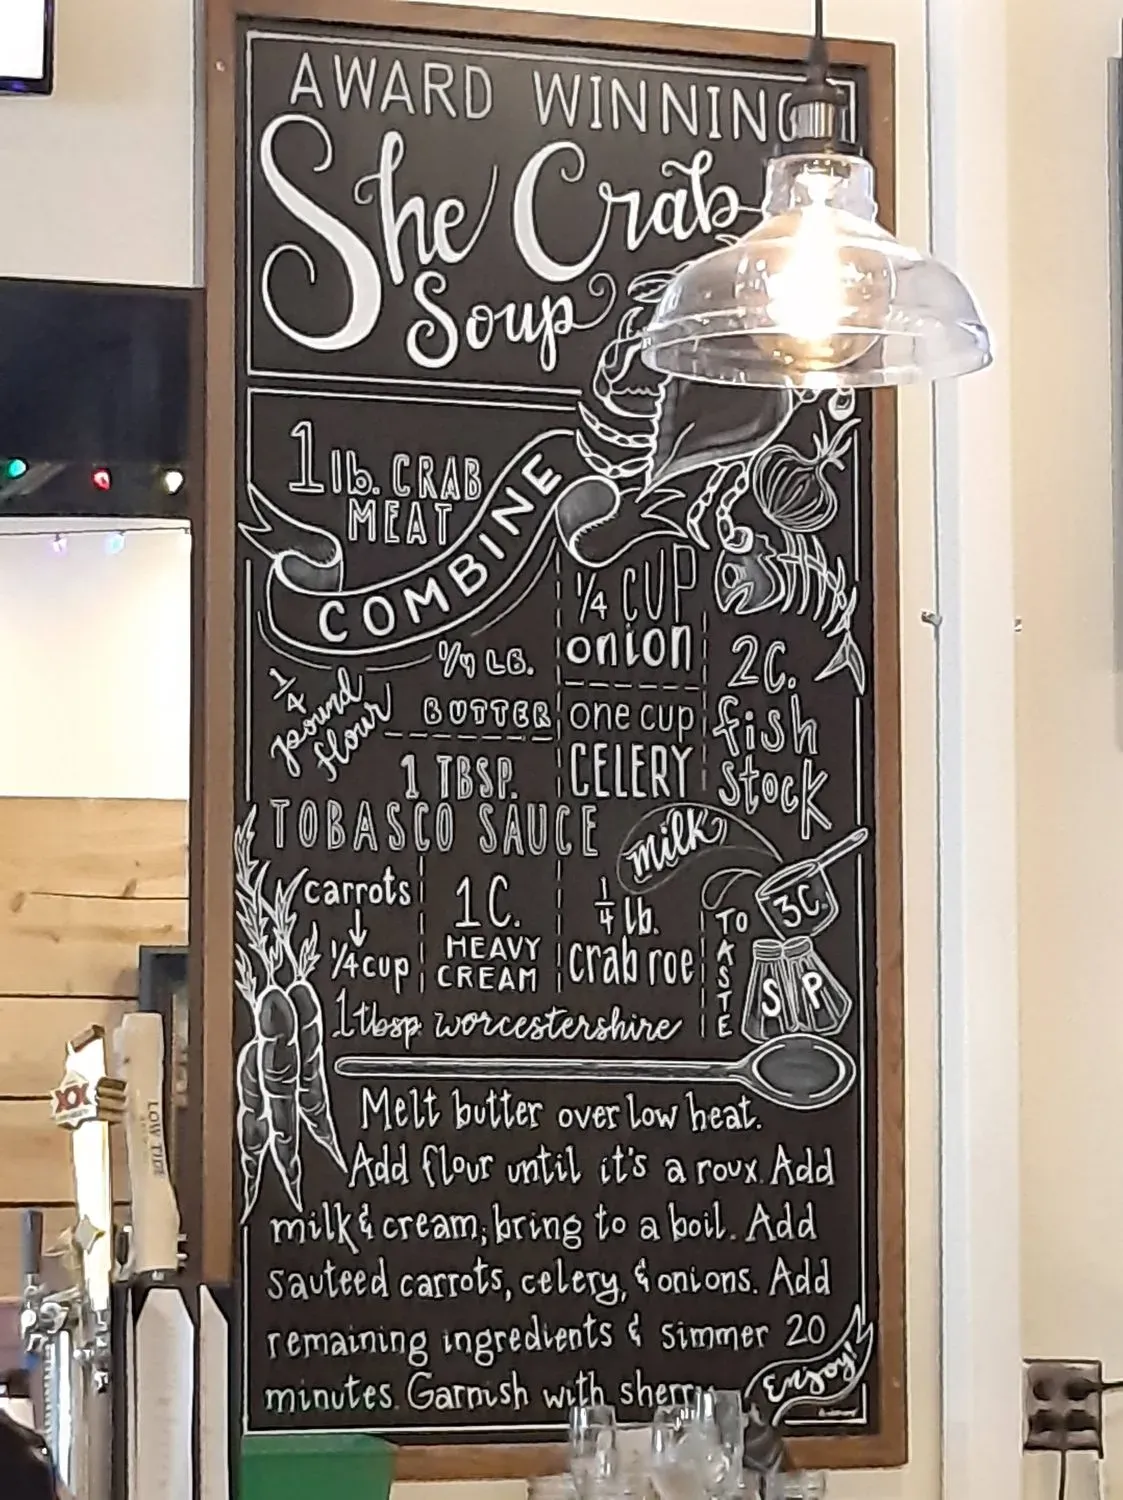 AWARD WINNING
She Crab
Soup
1 lb. CRAB
MEAT
COMBINE
1/4 CUP
onion
1/4 LB.
BUTTER
1/4
pound
flour
one cup
CELERY
2C.
fish
stock
1 TBSP.
TOBASCO SAUCE
milk
3C.
carrots
1/4 cup
1C.
HEAVY
CREAM
1/4 lb.
crab roe
TO
TASTE
S P
1 tbsp worcestershire
Melt butter over low heat.
Add flour until it's a roux. Add
milk & cream; bring to a boil. Add
sauteed carrots, celery, & onions. Add
remaining ingredients & simmer 20
minutes. Garnish with sherry
Enjoy!
XX
LOW TIDE